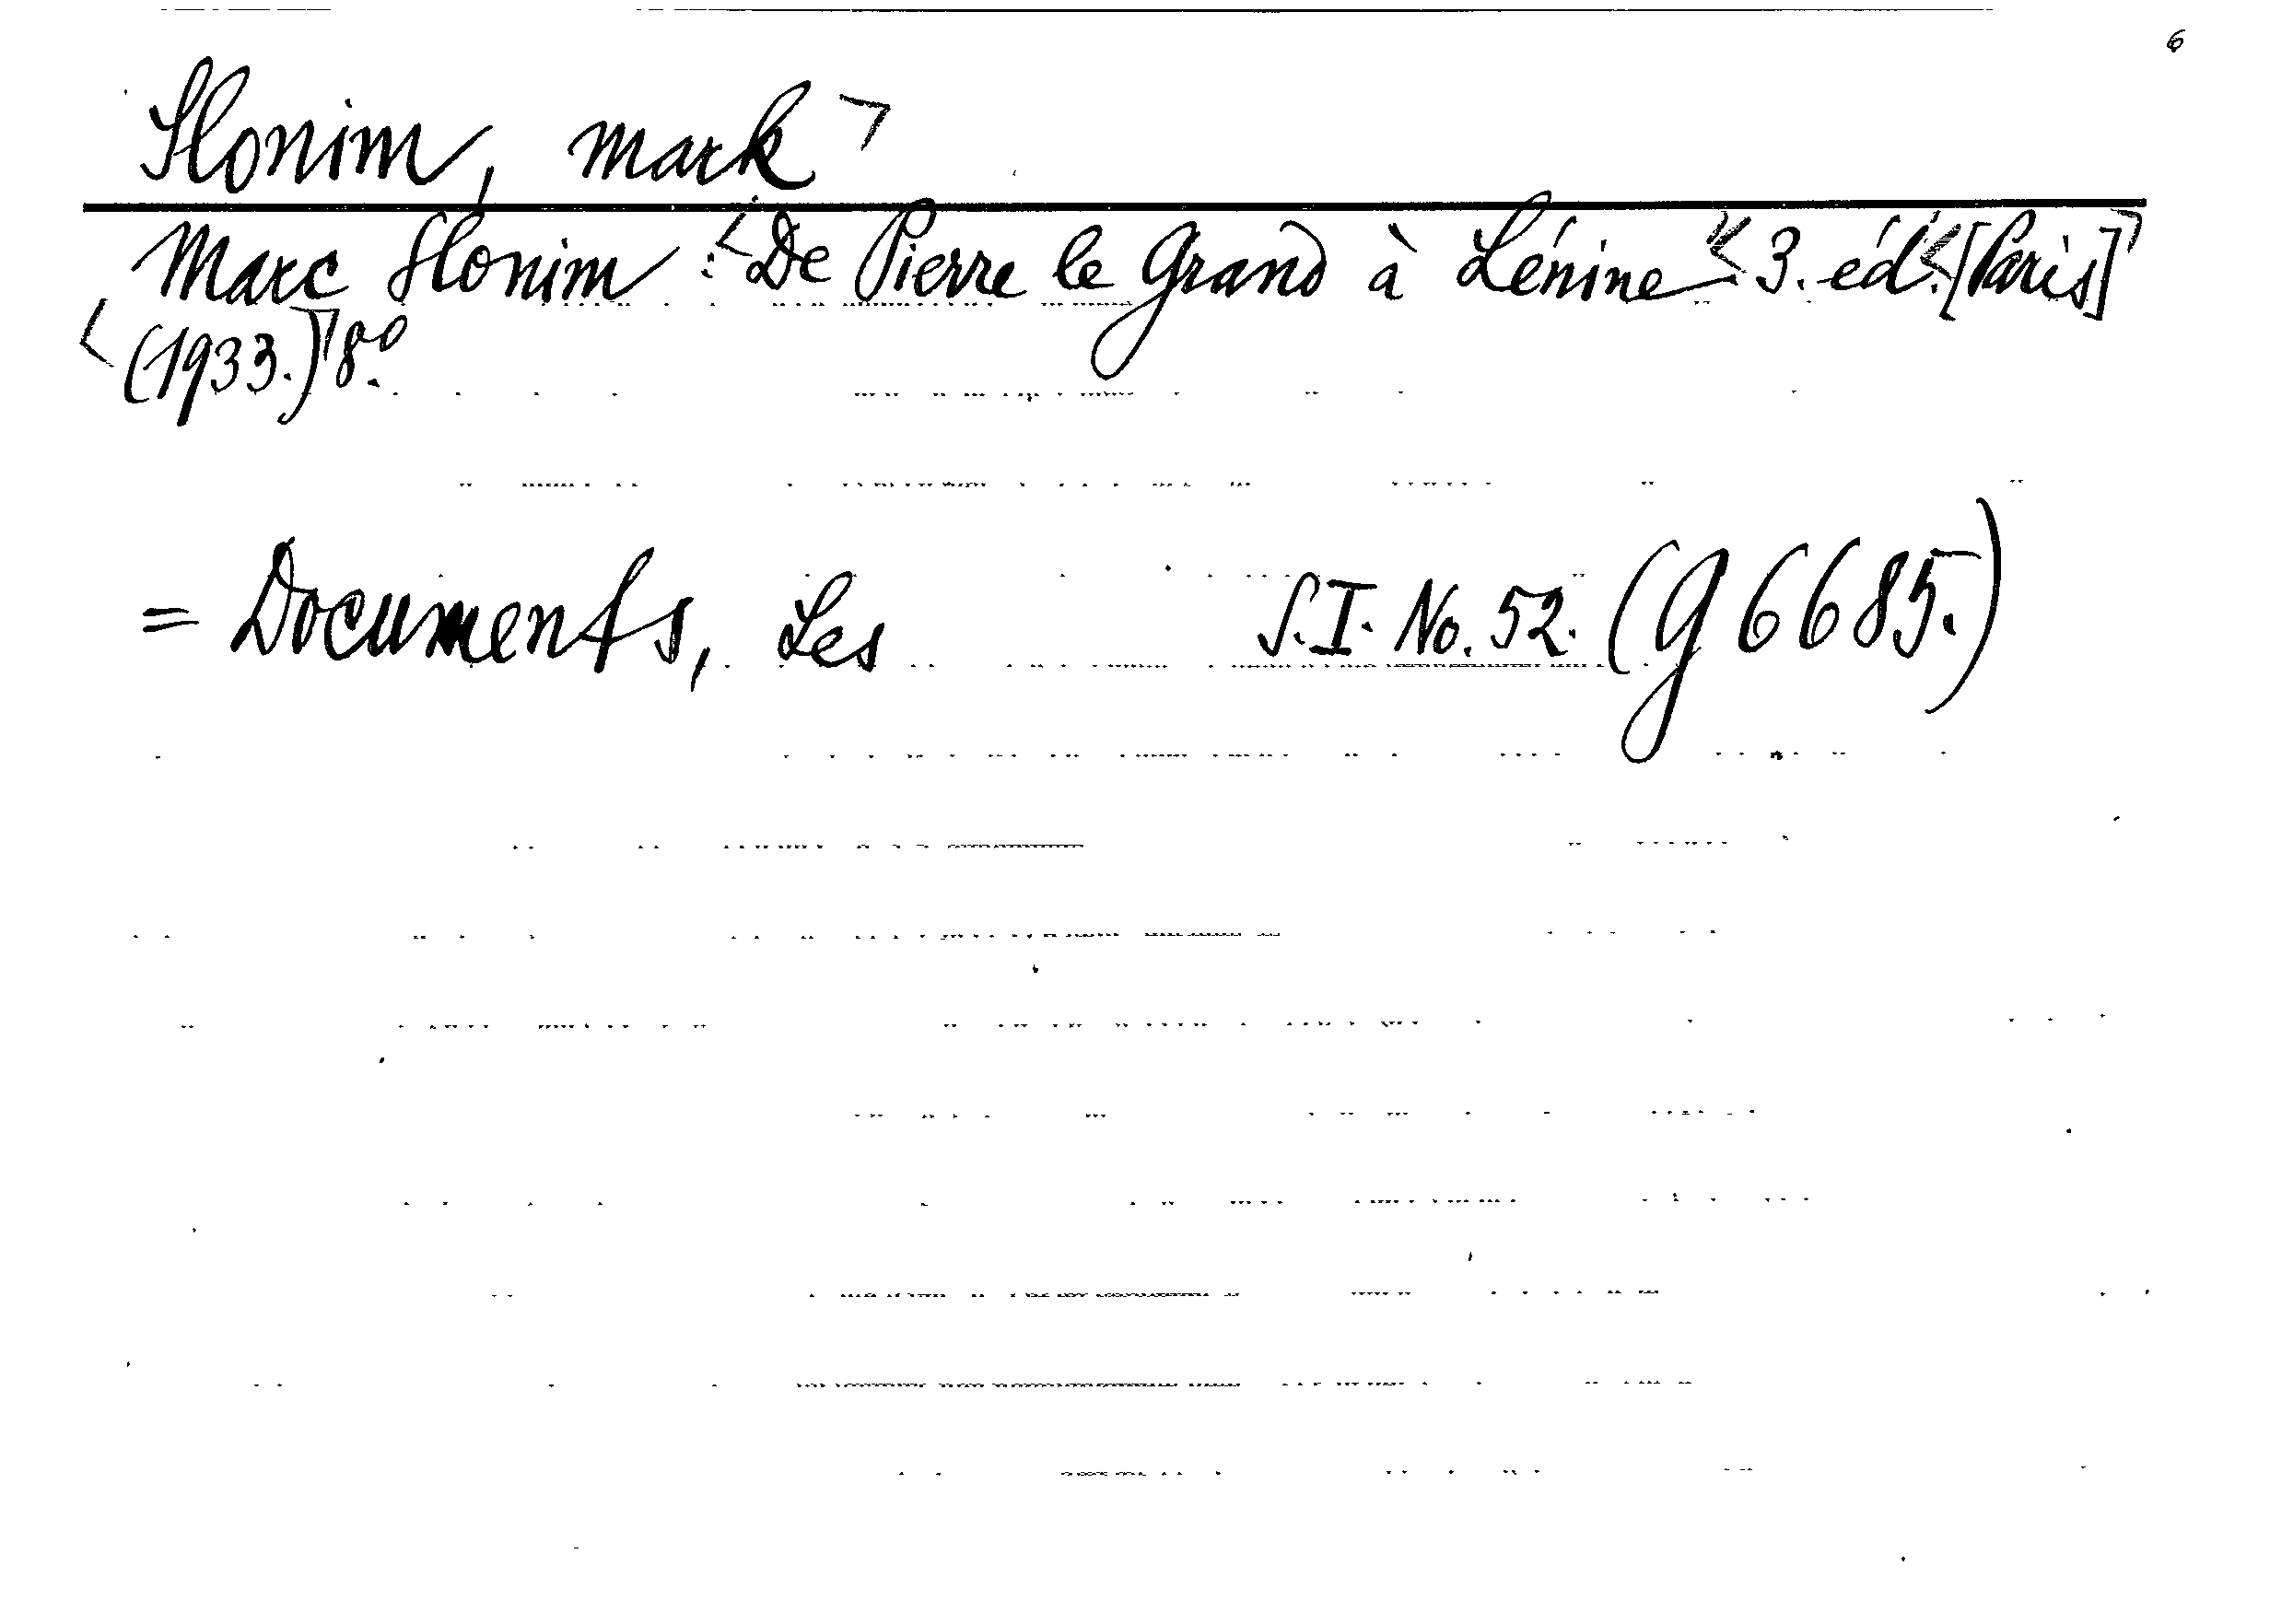 6
Slonim, Mark
Marc Slonim: De Pierre le Grand à Lénine. 3. éd. [Paris]
(1933.) 8°.
= Documents, Les S.I. No. 52. (g 6685.)